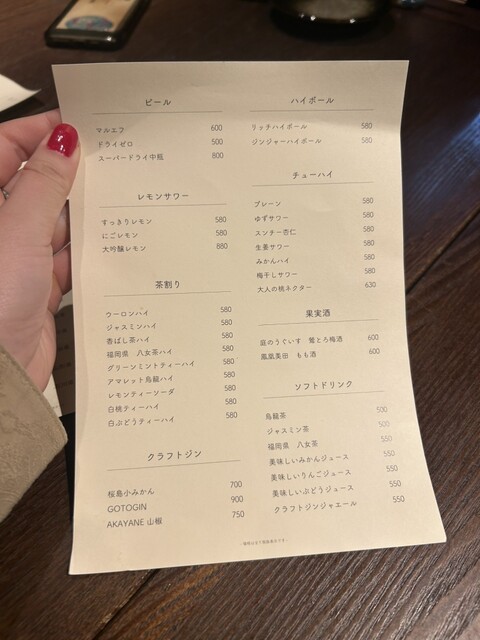 ビール
マルエフ 600
ドライゼロ 500
スーパードライ中瓶 800
レモンサワー
すっきりレモン 580
にごレモン 580
大吟醸レモン 880
茶割り
ウーロンハイ 580
ジャスミンハイ 580
香ばし茶ハイ 580
福岡県 八女茶ハイ 580
グリーンミントティーハイ 580
アマレット烏龍ハイ 580
レモンティーソーダ 580
白桃ティーハイ 580
白ぶどうティーハイ 580
クラフトジン
桜島小みかん 700
GOTOGIN 900
AKAYANE 山椒 750
ハイボール
リッチハイボール 580
ジンジャーハイボール 580
チューハイ
プレーン 580
ゆずサワー 580
スンチー杏仁 580
生姜サワー 580
みかんハイ 580
梅干しサワー 580
大人の桃ネクター 630
果実酒
庭のうぐいす 鶯とろ梅酒 600
鳳凰美田 もも酒 600
ソフトドリンク
烏龍茶 500
ジャスミン茶 500
福岡県 八女茶 550
美味しいみかんジュース 550
美味しいりんごジュース 550
美味しいぶどうジュース 550
クラフトジンジャエール 550